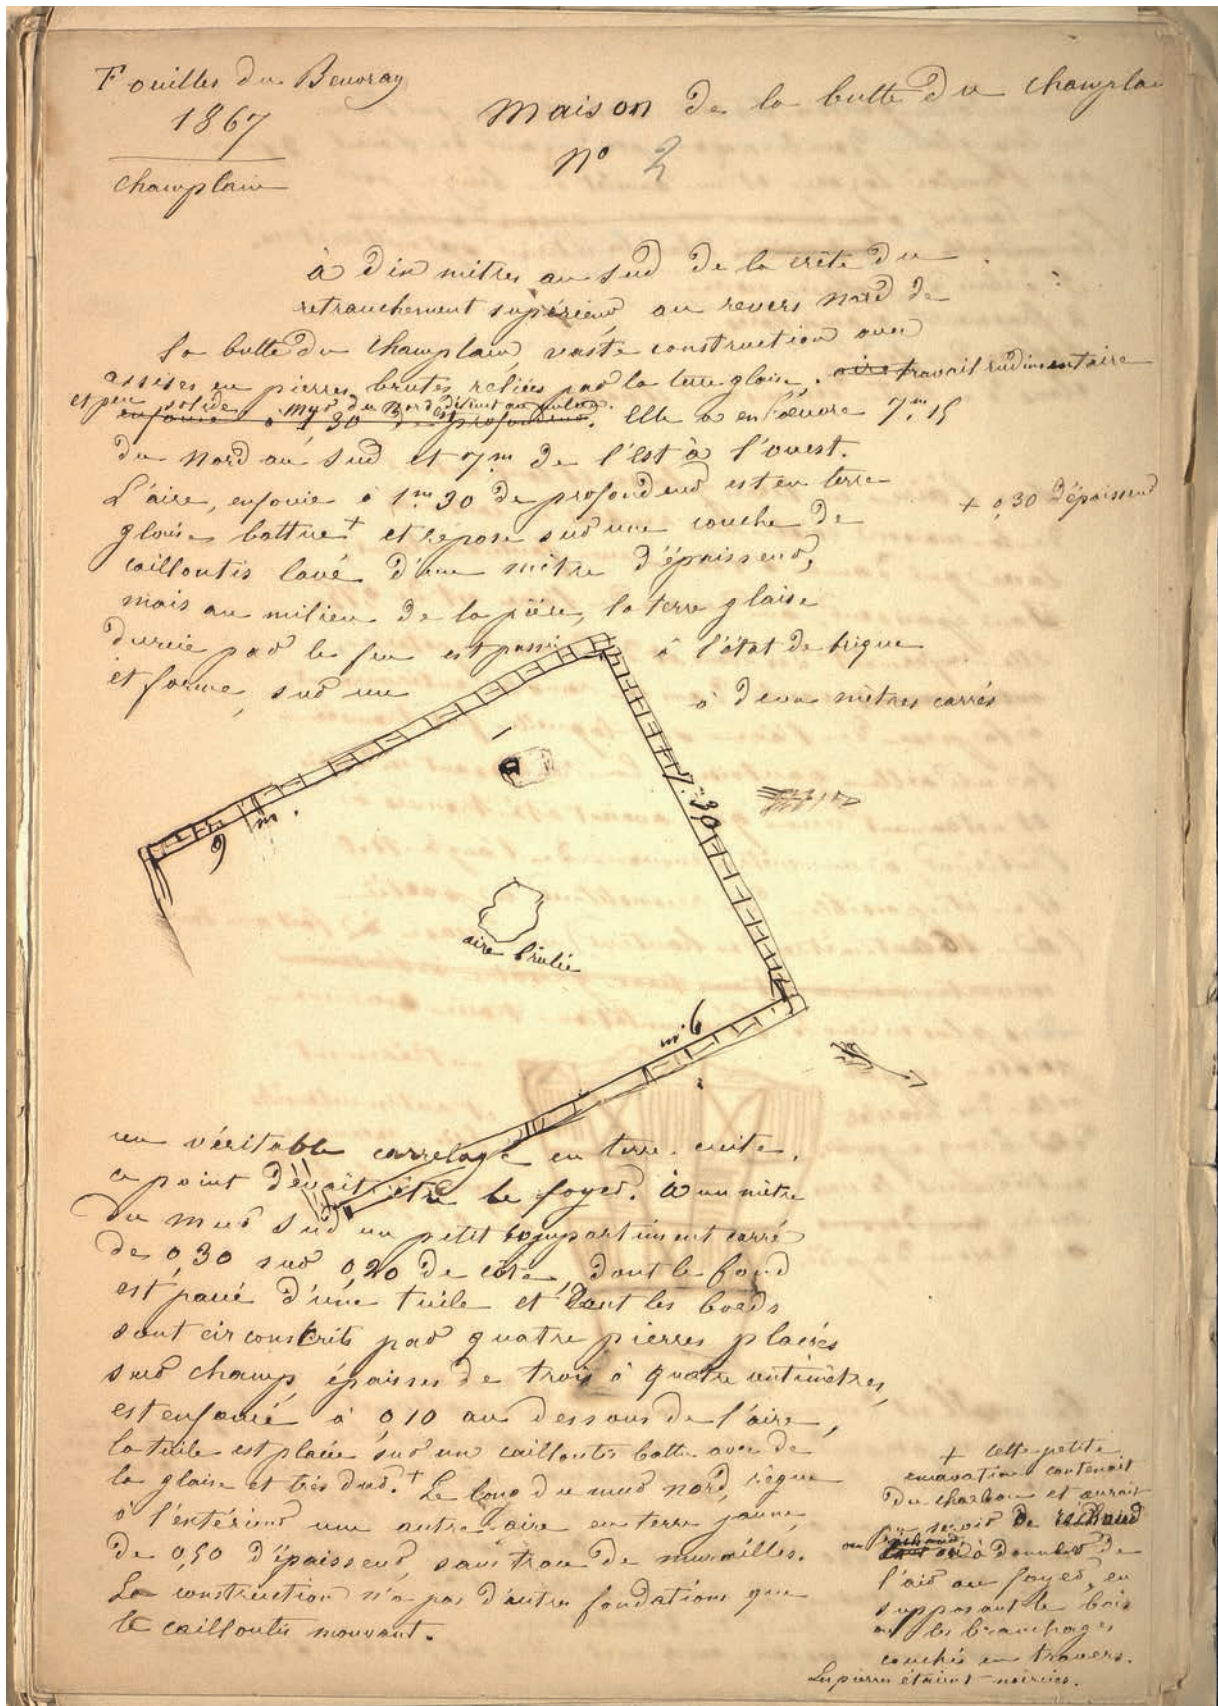 Fouilles du Beuvray
1867
Champlain
Maison de la butte du Champlain
N° 2
à dix mètres au sud de la crête du
retranchement supérieur au revers nord de
la butte du Champlain, vaste construction avec
assises en pierres brutes reliées par la terre glaise. aire travail rudimentaire
et peu solide. Mur du Nord détruit au milieu.
enfouie à 1 30 de profondeur. Elle a en œuvre 7m.15
du nord au sud et 7m de l'est à l'ouest.
L'aire, enfouie à 1m.30 de profondeur est en terre
+ 0,30 d'épaisseur
glaise battue + et repose sur une couche de
cailloutis lavé d'un mètre d'épaisseur,
mais au milieu de la pièce, la terre glaise
durcie par le feu est passée à l'état de brique
et forme, sur un à deux mètres carrés
1
9 m.
7.30
aire brulée
m. 6
un véritable carrelage en terre cuite.
ce point devait être le foyer. à un mètre
du mur sud un petit compartiment carré
de 0,30 sur 0,20 de côté, dont le fond
est pavé d'une tuile et dont les bords
sont circonscrits par quatre pierres placées
sur champ, épaisses de trois à quatre centimètres,
est enfoui à 0 10 au dessous de l'aire,
la tuile est placée sur un cailloutis battu avec de
la glaise et très dur. + Le long du mur nord, règne
à l'extérieur une autre aire en terre jaune
de 0,50 d'épaisseur, sans trace de murailles.
La construction n'a pas d'autres fondations que
le cailloutis mouvant.
+ cette petite
excavation contenait
du charbon et aurait
pu servir de réchaud
ou à donner de
l'air au foyer, en
supposant le bois
ou les branchages
couchés en travers.
Les pierres étaient noircies.